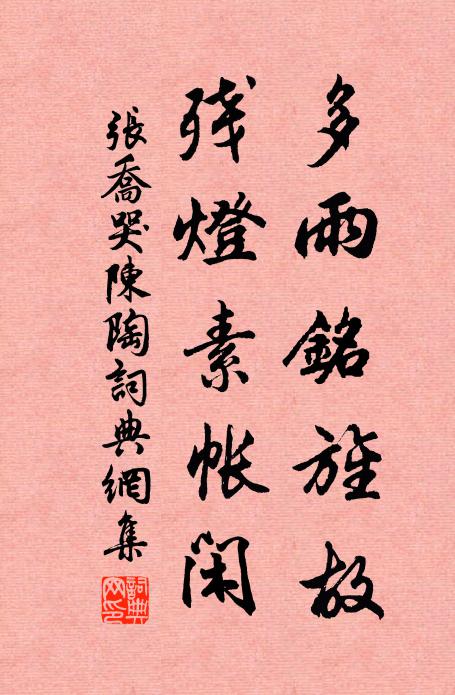 多雨銘旌故
残燈素帐閑
張喬哭陳陶詞典網集
詞典网印